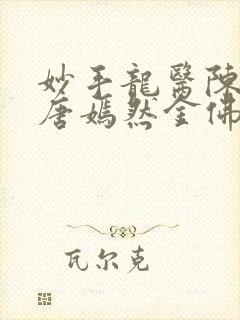 妙手龍醫陳
唐嫣然全佛
瓦尔克